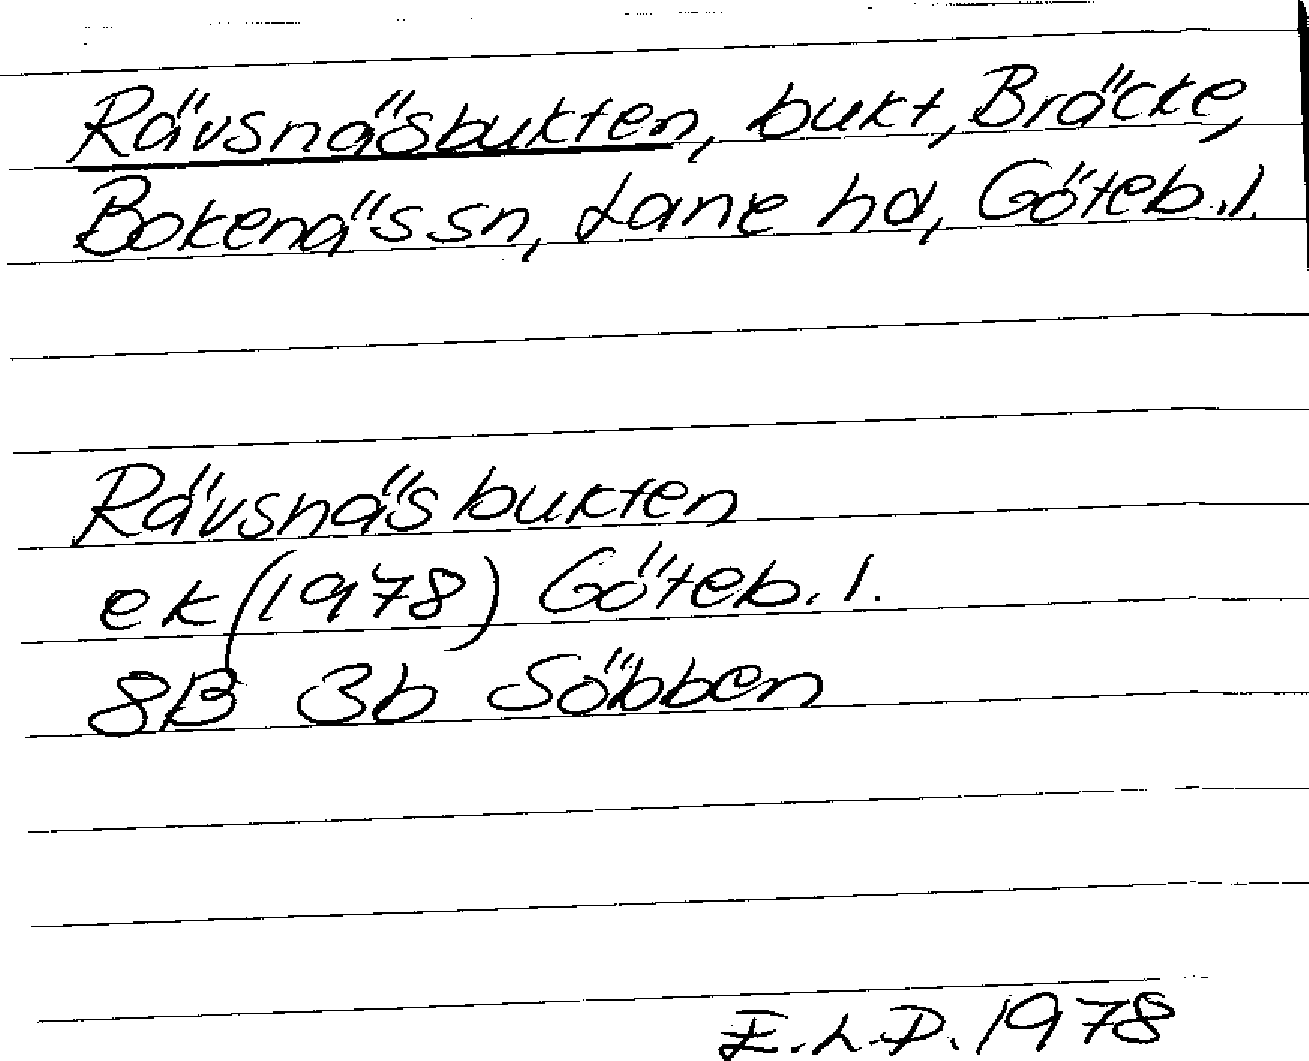 Rävsnäsbukten, bukt, Bräcke,
Bokenäs sn, Lane hd, Göteb. l.
Rävsnäsbukten
ek (1978) Göteb. l.
8B 3b Söbben
E.L.D. 1978